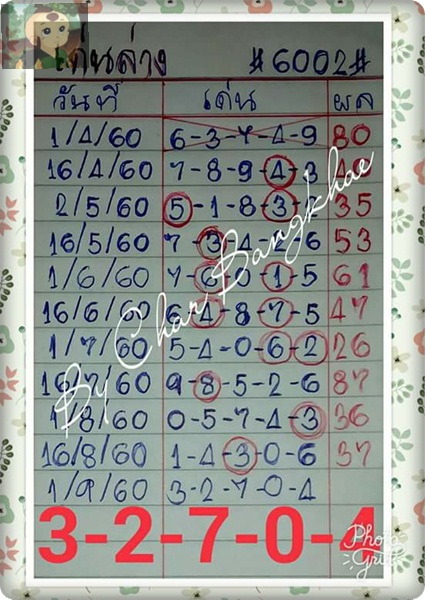 เด่นล่าง #6002#
วันที่ เด่น ผล
1/4/60 6-3-7-4-9 80
16/4/60 7-8-9-4-3
2/5/60 5-1-8-3- 35
16/5/60 7-3-4- -6 53
1/6/60 7-6-0-1-5 61
16/6/60 6-4-8-7-5 47
1/7/60 5-4-0-6-2 26
16/7/60 9-8-5-2-6 87
1/8/60 0-5-7-4-3 36
16/8/60 1-4-3-0-6 37
1/9/60 3-2-7-0-4
3-2-7-0-4
By Char Bangkhae
Photo Grid